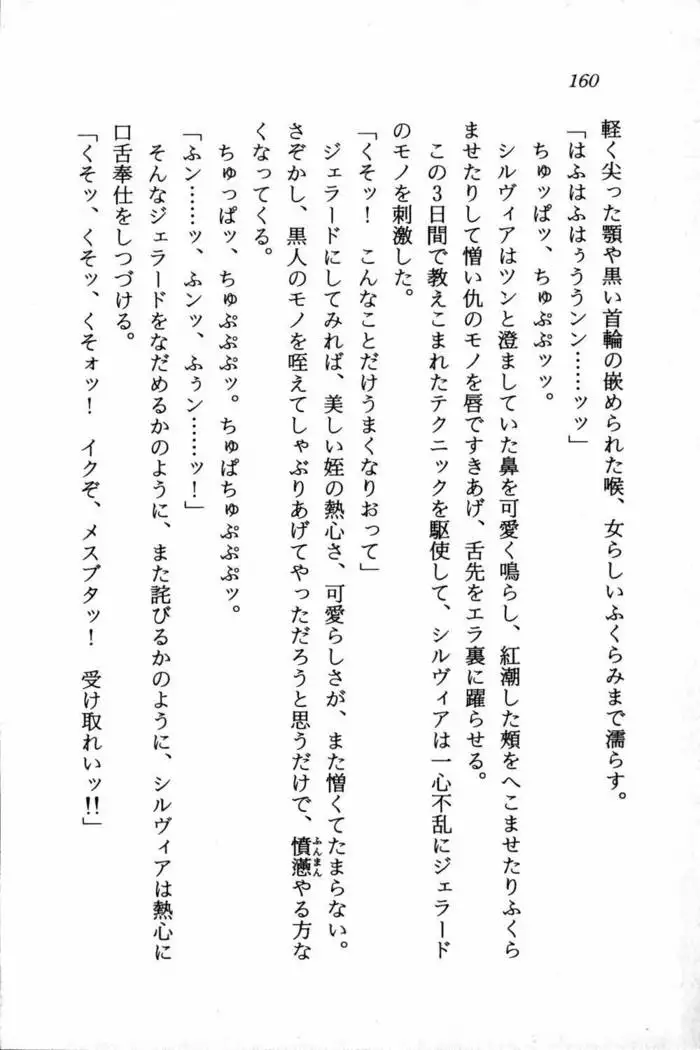 160
軽く尖った顎や黒い首輪の嵌められた喉、女らしいふくらみまで濡らす。
「はふはふはぅううンン……ッッ」
ちゅッぱッ、ちゅぷぷッッ。
シルヴィアはツンと澄ましていた鼻を可愛く鳴らし、紅潮した頰をへこませたりふくら
ませたりして憎い仇のモノを唇ですきあげ、舌先をエラ裏に躍らせる。
この3日間で教えこまれたテクニックを駆使して、シルヴィアは一心不乱にジェラード
のモノを刺激した。
「くそッ！　こんなことだけうまくなりおって」
ジェラードにしてみれば、美しい姪の熱心さ、可愛らしさが、また憎くてたまらない。
さぞかし、黒人のモノを咥えてしゃぶりあげてやっただろうと思うだけで、憤懣やる方な
くなってくる。
ちゅっぱッ、ちゅぷぷぷッ。ちゅぱちゅぷぷぷッ。
「ふン……ッ、ふンッ、ふぅン……ッ！」
そんなジェラードをなだめるかのように、また詫びるかのように、シルヴィアは熱心に
口舌奉仕をしつづける。
「くそッ、くそッ、くそォッ！　イクぞ、メスブタッ！　受け取れいッ!!」
ふんまん